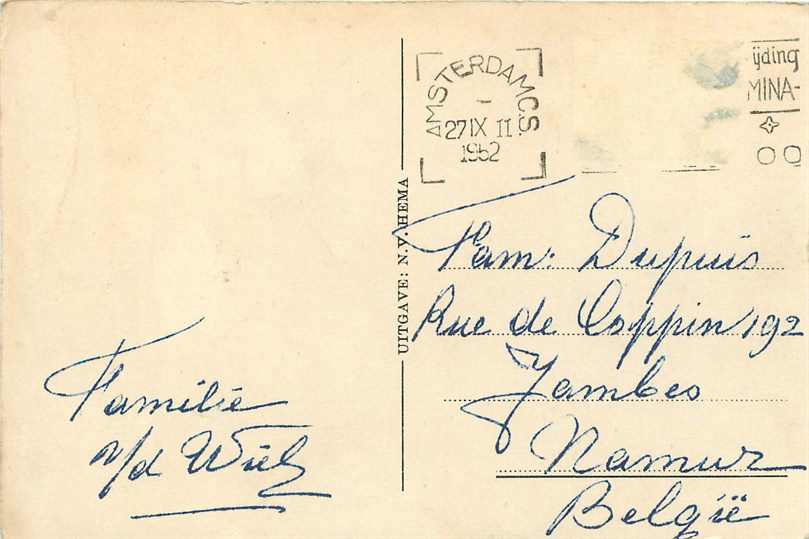 AMSTERDAM C.S.
27 IX 11
1952
ijding
MINA-
UITGAVE: N.V. HEMA
Fam. Dupuis
Rue de Coppin 192
Jambes
Namur
België
Familie
v/d Wiel